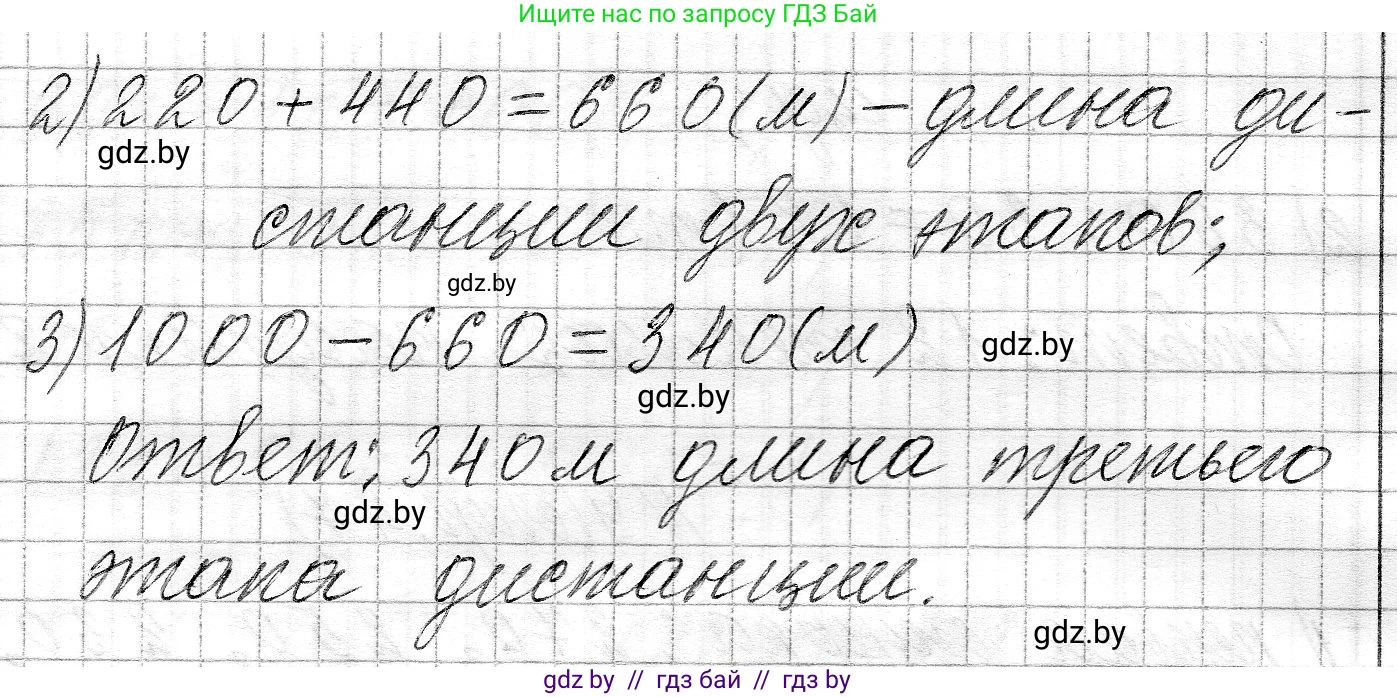 Ищите нас по запросу ГДЗ Бай
2) 220 + 440 = 660 (м) – длина ди-
gdz.by
станции двух этапов;
gdz.by
3) 1000 – 660 = 340 (м)
gdz.by
gdz.by
Ответ: 340 м длина третьего
gdz.by
этапа дистанции.
gdz.by
gdz by // гдз бай // гдз by